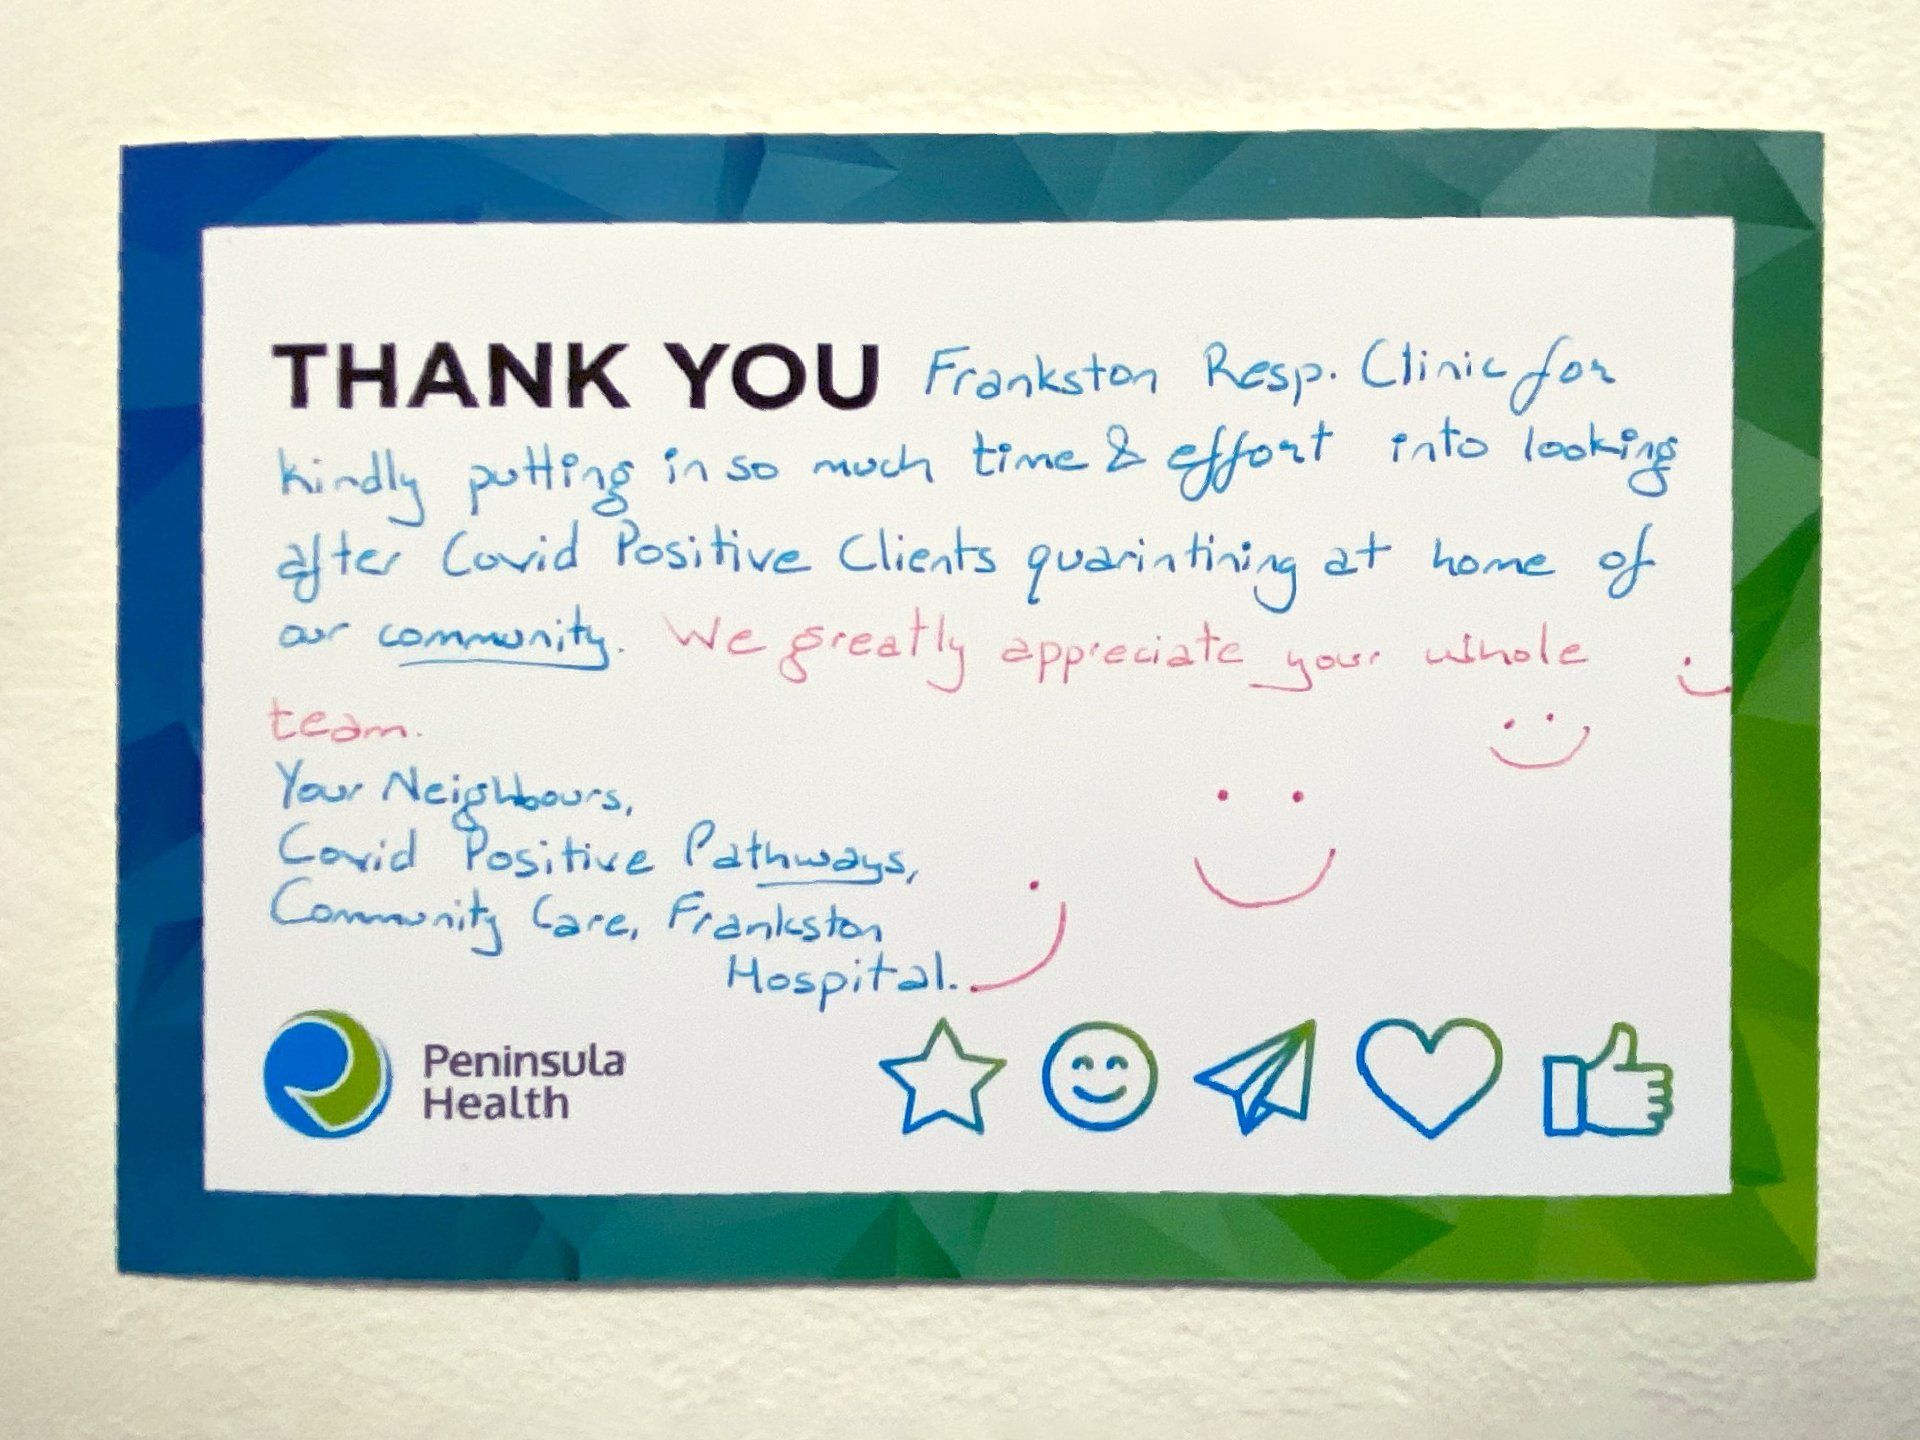 THANK YOU Frankston Resp. Clinic for
kindly putting in so much time & effort into looking
after Covid Positive Clients quarintining at home of
our community. We greatly appreciate your whole
team.
Your Neighbours,
Covid Positive Pathways,
Community Care, Frankston
Hospital.
Peninsula
Health